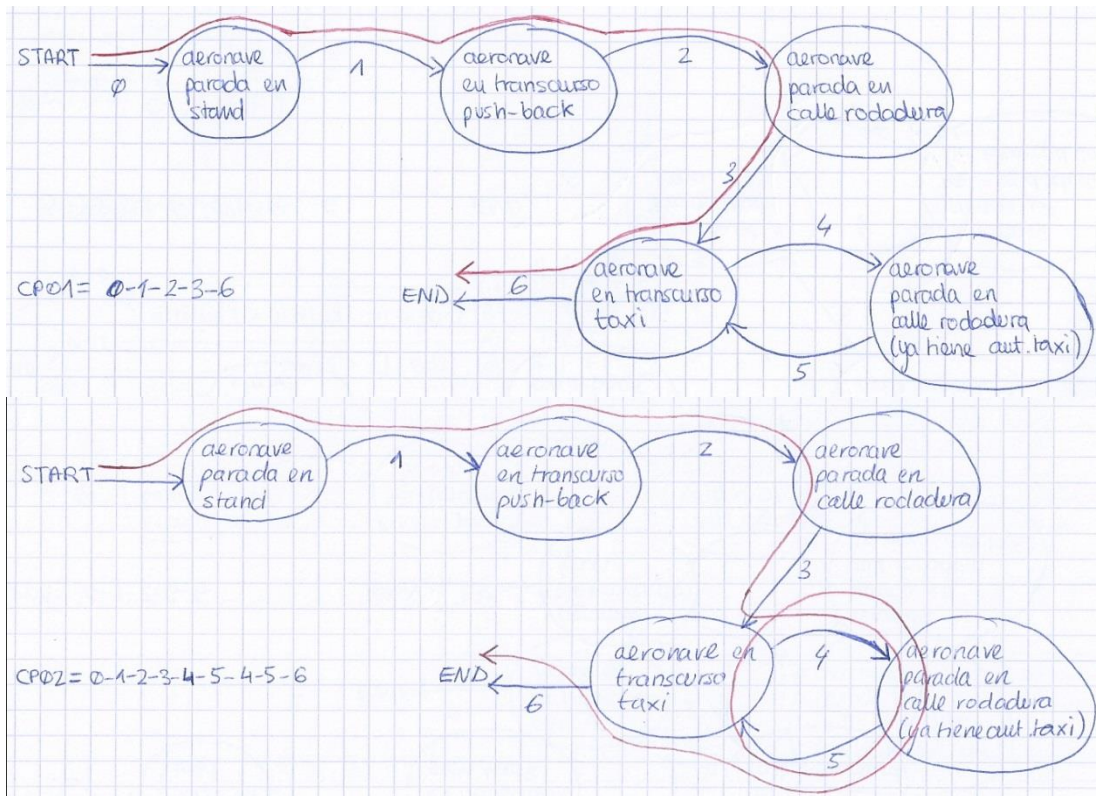 START
0
aeronave
parada en
stand
1
aeronave
en transcurso
push-back
2
aeronave
parada en
calle rodadura
3
CP01= 0-1-2-3-6
END
6
aeronave
en transcurso
taxi
4
aeronave
parada en
calle rodadura
(ya tiene aut. taxi)
5
START
aeronave
parada en
stand
1
aeronave
en transcurso
push-back
2
aeronave
parada en
calle rodadura
3
CP02= 0-1-2-3-4-5-4-5-6
END
6
aeronave en
transcurso
taxi
4
aeronave
parada en
calle rodadura
(ya tiene aut. taxi)
5